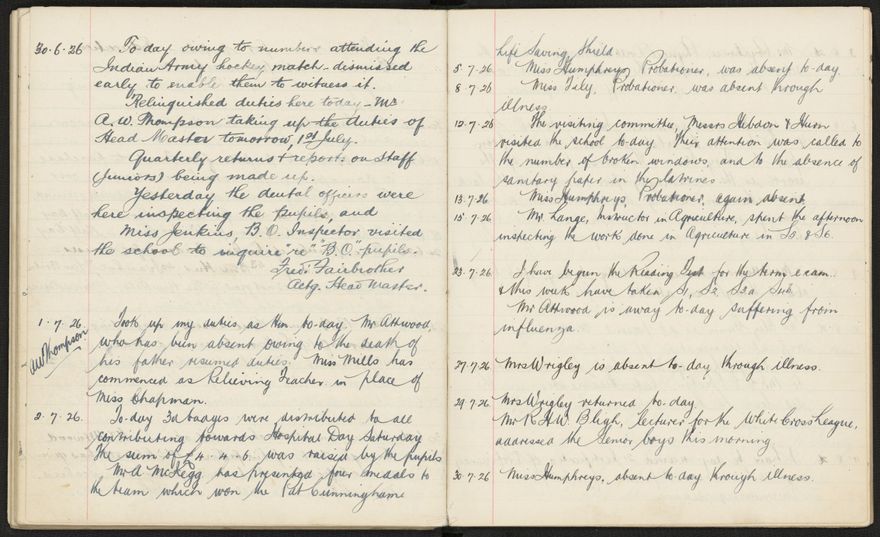 30.6.26 To-day owing to numbers attending the
Indian Army hockey match - dismissed
early to enable them to witness it.
Relinquished duties here today - Mr
A. W. Thompson taking up the duties of
Head Master tomorrow, 1st July.
Quarterly returns & reports on staff
(juniors) being made up.
Yesterday the dental officers were
here inspecting the pupils, and
Miss Jenkins, B.O. Inspector visited
the school to inquire "re" "B.O." pupils.
Fred. Fairbrother
Actg. Head Master.
1.7.26 Took up my duties as Hm to-day. Mr Attwood,
AWThompson
who has been absent owing to the death of
his father resumed duties. Miss Mills has
commenced as Relieving Teacher in place of
Miss Chapman.
2.7.26. To-day 3d badges were distributed to all
contributing towards Hospital Day Saturday
The sum of £4.4.6 was raised by the pupils
Mr A McKegg has presented four medals to
the team which won the Pat Cunninghame
Life Saving Shield
5.7.26 Miss Humphreys, Probationer, was absent to-day
8.7.26 Miss Daly, Probationer was absent through
illness
12.7.26 The visiting committee, Messrs Hebdon & Hurn
visited the school to-day. Their attention was called to
the number of broken windows, and to the absence of
sanitary paper in the latrines.
13.7.26 Miss Humphreys, Probationer, again absent.
15.7.26 Mr Lange, Instructor in Agriculture, spent the afternoon
inspecting the work done in Agriculture in S5 & S6.
23.7.26 I have begun the Reading Test for the term exam.
& this week have taken S1, S2 S3a S4b
Mr Attwood is away to-day suffering from
influenza
27.7.26 Mrs Wrigley is absent to-day through illness.
29.7.26 Mrs Wrigley returned to-day
Mr R H W Bligh, lecturer for the White Cross League,
addressed the Senior boys this morning
30.7.26 Miss Humphreys, absent to-day through illness.